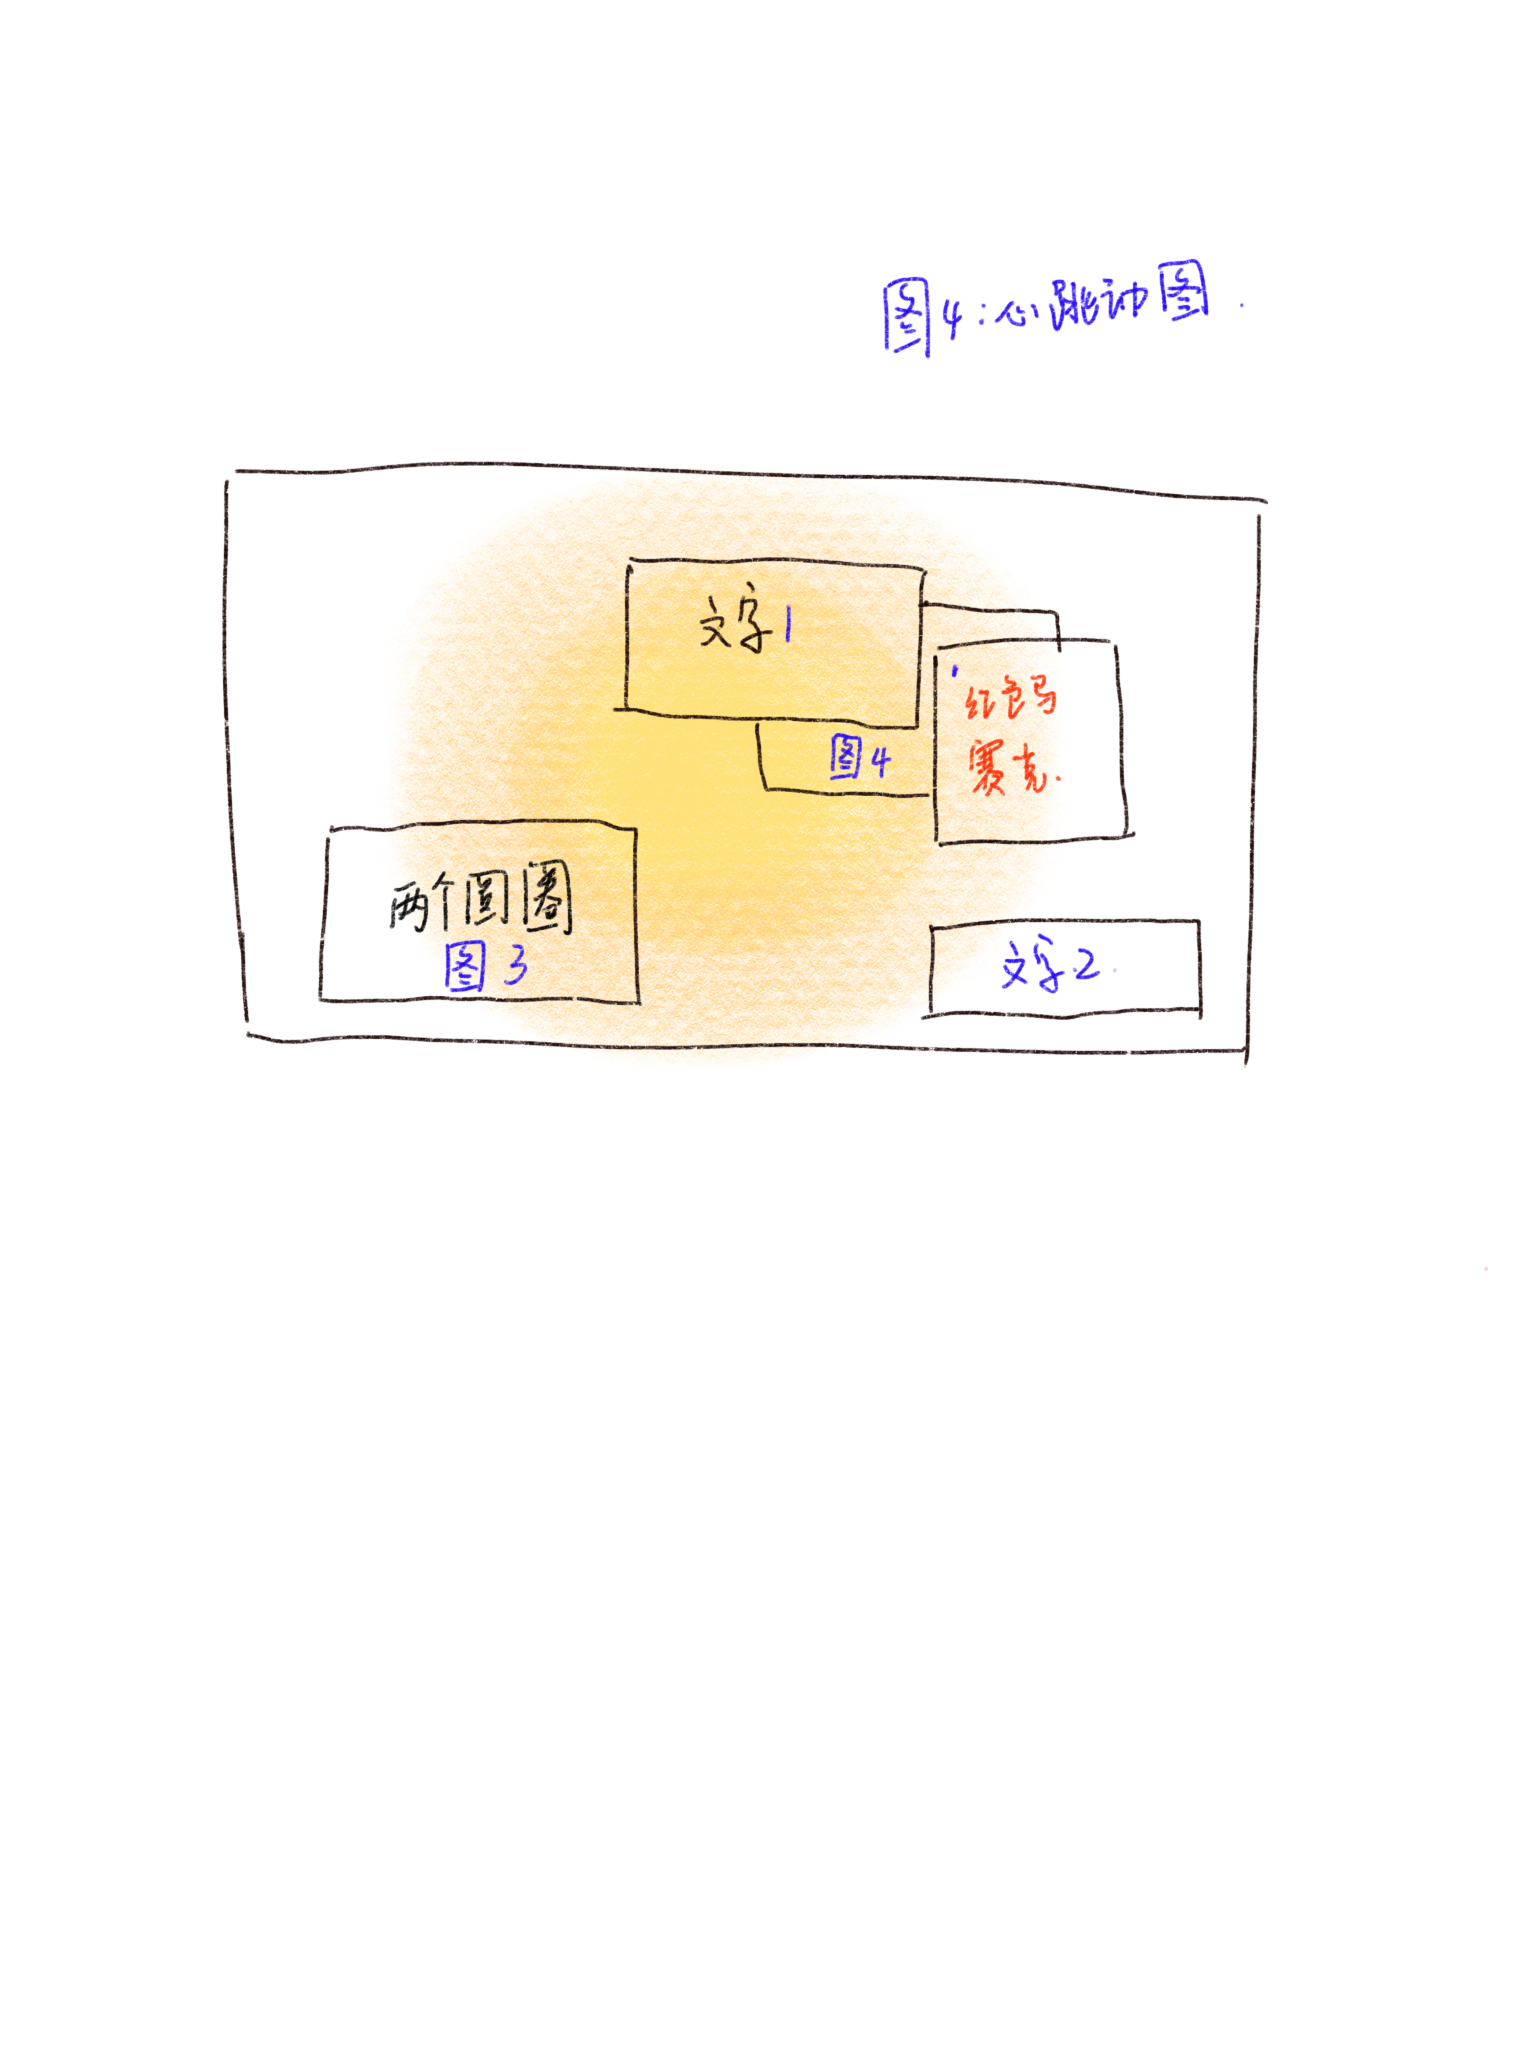 图4:心跳动图.
文字1
红色玛
赛克.
图4
两个圆圈
图3
文字2.